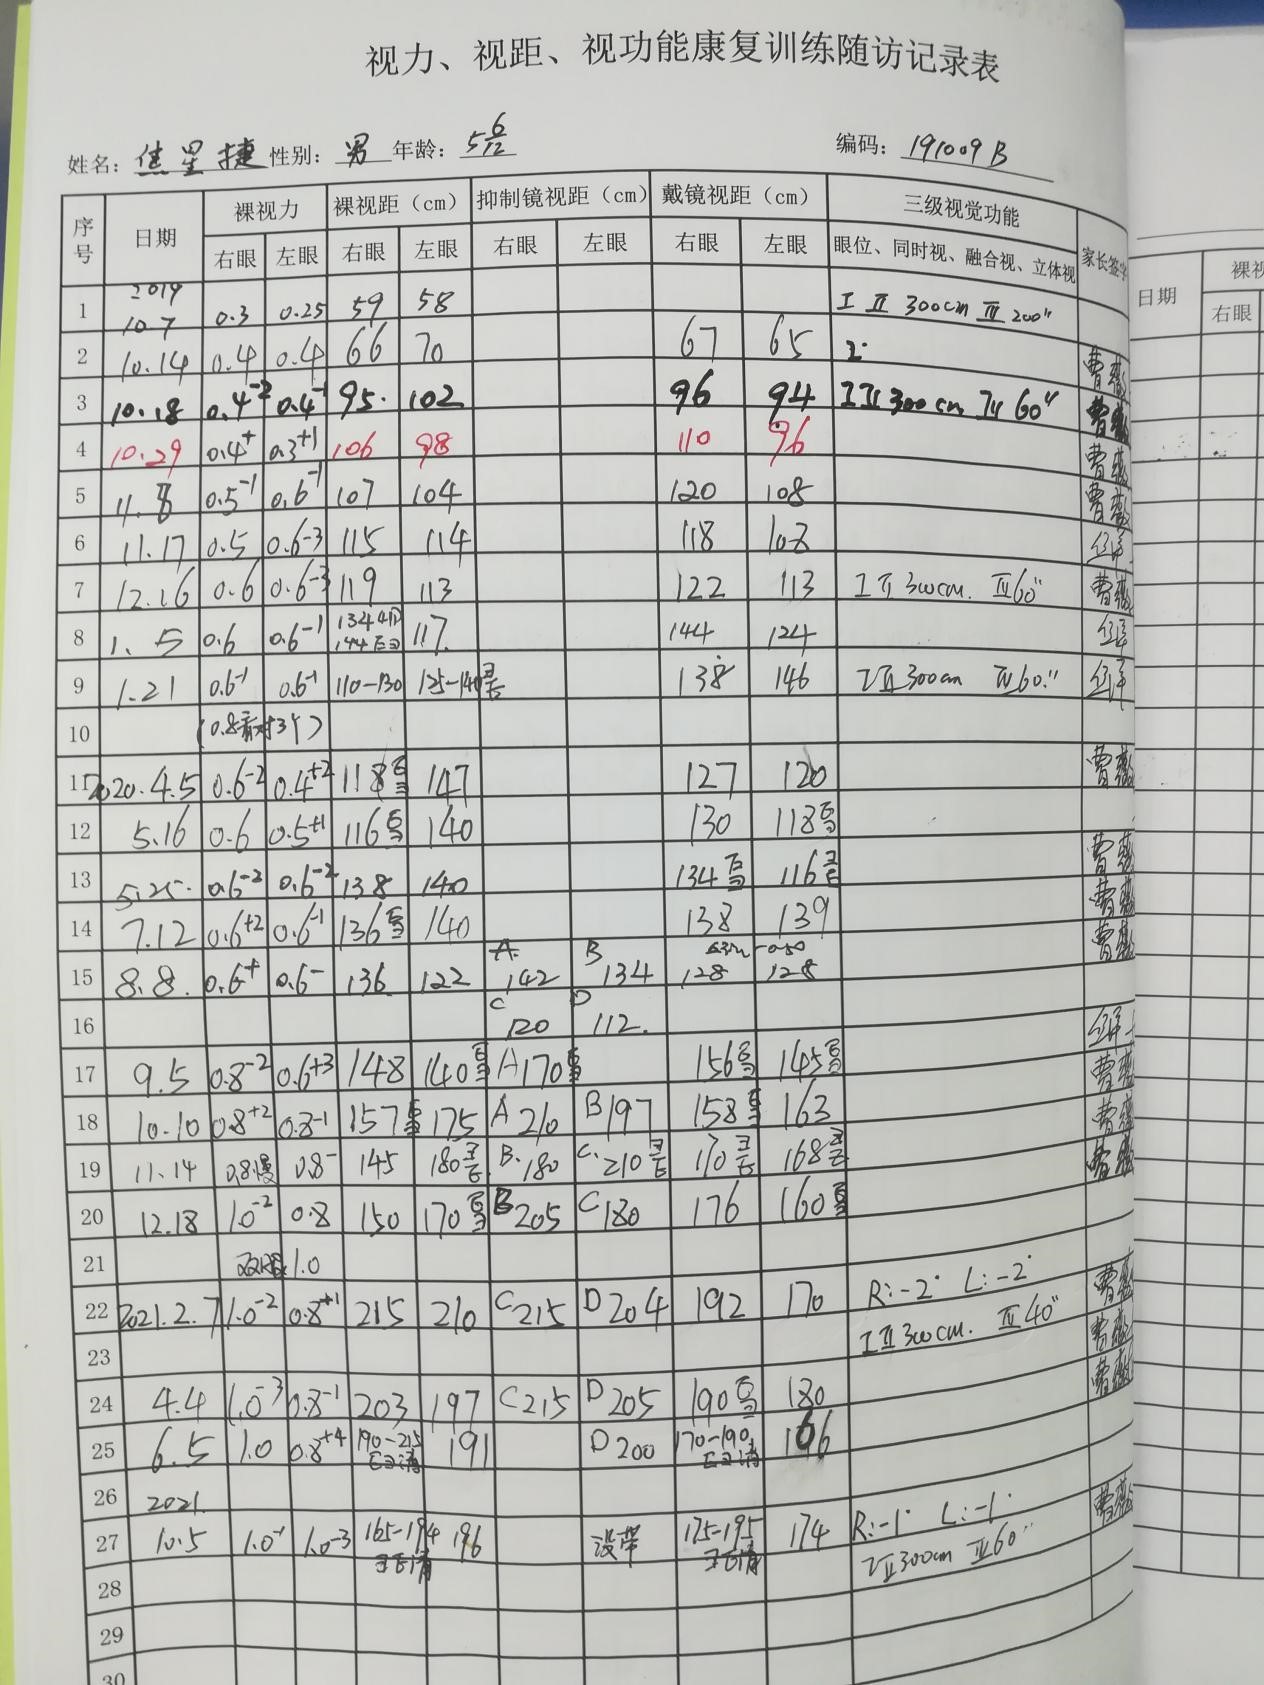 视力、视距、视功能康复训练随访记录表
姓名：焦星捷 性别：男 年龄：5 6/12 编码：191009B
序号 日期 裸视力 裸视距（cm） 抑制镜视距（cm） 戴镜视距（cm） 三级视觉功能 家长签字
右眼 左眼 右眼 左眼 右眼 左眼 右眼 左眼 眼位、同时视、融合视、立体视
日期 右眼
1 2019 10.7 0.3 0.25 59 58 I II 300cm III 200"
2 10.14 0.4 0.4 66 70 67 65
3 10.18 0.4⁻² 0.4⁻¹ 95. 102 96 94 I II 300cm 60"
4 10.29 0.4⁺ 0.3⁺¹ 106 98 110 96
5 11.8 0.5⁻¹ 0.6⁻¹ 107 104 120 108
6 11.17 0.5 0.6⁻³ 115 114 118 108
7 12.16 0.6 0.6⁻³ 119 113 122 113 I II 300cm. III 60"
8 1.5 0.6 0.6⁻¹ 134 144 117. 144 124
9 1.21 0.6⁻¹ 0.6⁻¹ 110-130 125-140 138 146 I II 300cm III 60"
10 (0.8看对3个)
11 2020.4.5 0.6⁻² 0.4⁺² 118 147 127 120
12 5.16 0.6 0.5⁺¹ 116 140 130 118
13 5.25. 0.6⁻² 0.6⁻² 138 140 134 116
14 7.12 0.6⁺² 0.6⁻¹ 136 140 138 139
15 8.8. 0.6⁺ 0.6⁻ 136 122 A 142 B 134 -0.50 128 128
16 C 120 D 112.
17 9.5 0.8⁻² 0.6⁺³ 148 140 A 170 156 145
18 10.10 0.8⁺² 0.8⁻¹ 157 175 A 210 B 197 158 163
19 11.14 0.8慢 0.8⁻ 145 180 B. 180 C. 210 170 168
20 12.18 1.0⁻² 0.8 150 170 B 205 C 180 176 160
21 双眼 1.0
22 2021.2.7 1.0⁻² 0.8⁺¹ 215 210 C 215 D 204 192 170 R:-2° L:-2°
23 I II 300cm. III 40"
24 4.4 1.0⁻³ 0.8⁻¹ 203 197 C 215 D 205 190 180
25 6.5 1.0 0.8⁺⁴ 190-215 清 191 D 200 170-190 清 166
26 2021.
27 10.5 1.0⁻¹ 1.0⁻³ 165-194 清 196 没带 175-195 清 174 R:-1° L:-1°
I II 300cm III 60"
28
29
30